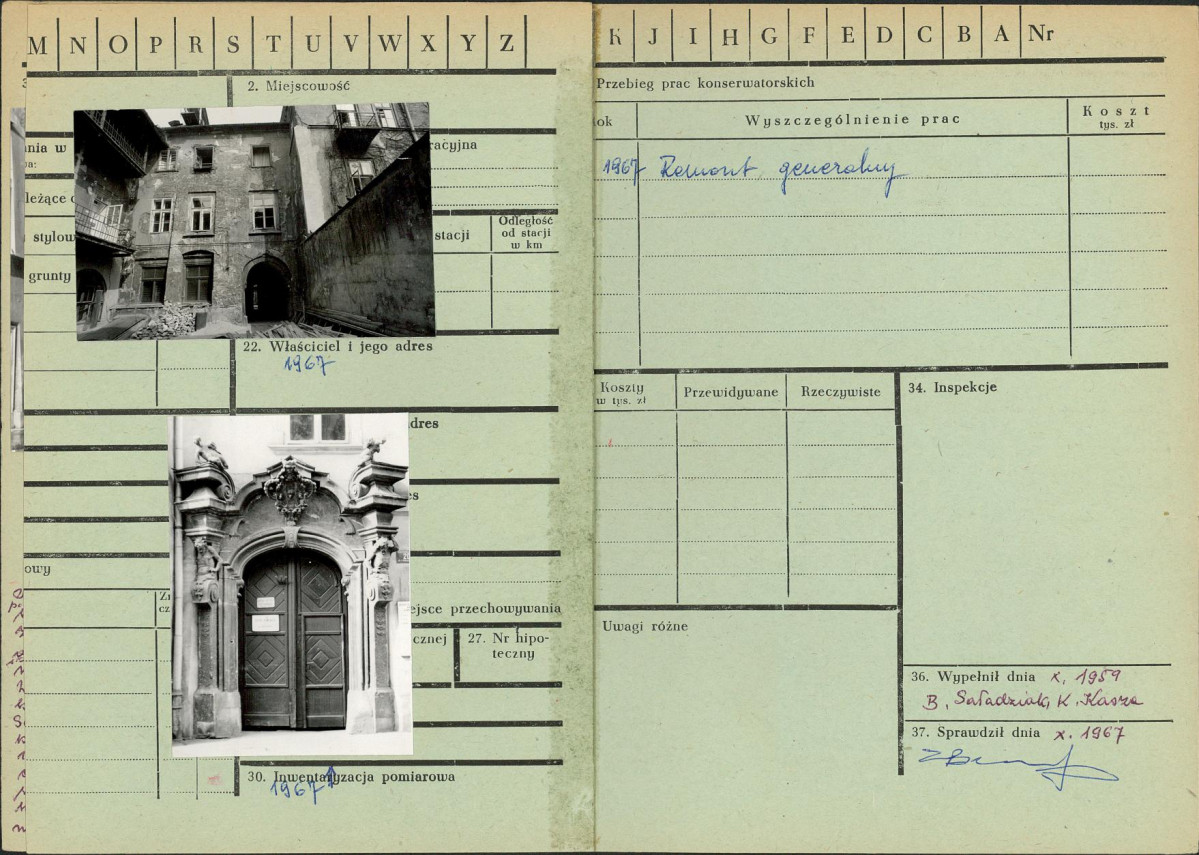 M N O P R S T U V W X Y Z
2. Miejscowość
nia w
racyjna
leżące
stylow
stacji
Odległość
od stacji
w km
grunty
22. Właściciel i jego adres
1967
dres
es
owy
ejsce przechowywania
cznej
27. Nr hipo-
teczny
30. Inwentaryzacja pomiarowa
1967
K J I H G F E D C B A Nr
Przebieg prac konserwatorskich
ok
Wyszczególnienie prac
Koszt
tys. zł
1967 Remont generalny
Koszty
w tys. zł
Przewidywane
Rzeczywiste
34. Inspekcje
Uwagi różne
36. Wypełnił dnia X. 1959
B. Saładziak, K. Kasza
37. Sprawdził dnia X. 1967